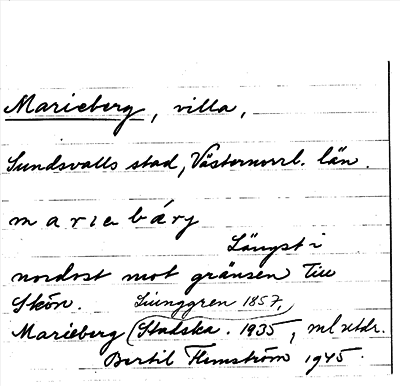 Marieberg, villa,
Sundsvalls stad, Västernorrl. län.
mariebärj
Längst i
nordost mot gränsen till
Skön. Ljunggren 1857,
Marieberg (Stadska. 1935, ml utdr.
Bertil Flemström 1945.